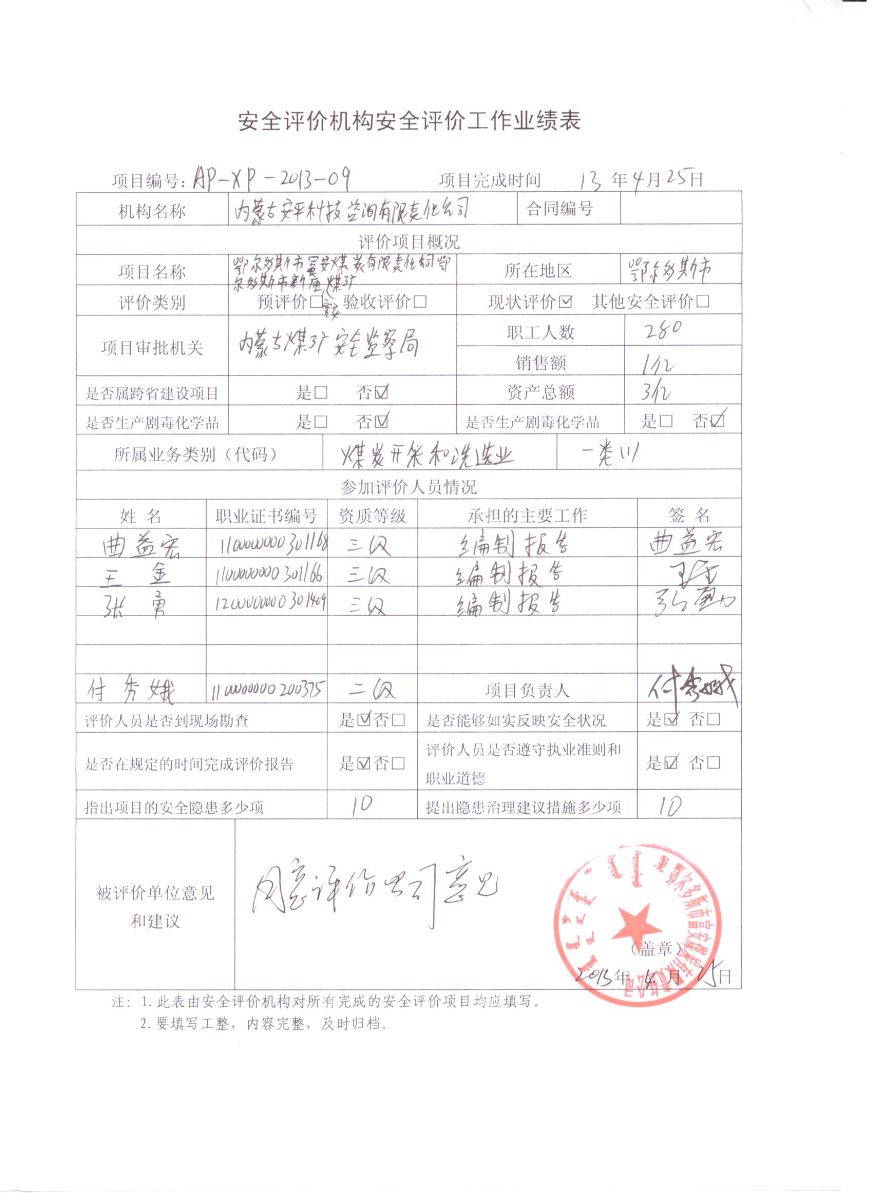 安全评价机构安全评价工作业绩表
项目编号: AP-XP-2013-09 项目完成时间 13年4月25日
机构名称 内蒙古安平科技咨询有限责任公司 合同编号
评价项目概况
项目名称 鄂尔多斯市富安煤炭有限责任公司鄂尔多斯市新庙煤矿 所在地区 鄂尔多斯市
评价类别 预评价□ 验收评价□ 现状评价☑ 其他安全评价□
项目审批机关 内蒙古煤矿安全监察局 职工人数 280
销售额 1亿
是否属跨省建设项目 是□ 否☑ 资产总额 3亿
是否生产剧毒化学品 是□ 否☑ 是否生产剧毒化学品 是□ 否☑
所属业务类别（代码） 煤炭开采和洗选业 一类
参加评价人员情况
姓 名 职业证书编号 资质等级 承担的主要工作 签 名
曲益宏 1100000000301168 三级 编制报告 曲益宏
王金 1100000000301166 三级 编制报告 王金
张勇 1200000000301409 三级 编制报告 张勇
付秀娥 1100000000200375 二级 项目负责人 付秀娥
评价人员是否到现场勘查 是☑否□ 是否能够如实反映安全状况 是☑ 否□
是否在规定的时间完成评价报告 是☑否□ 评价人员是否遵守执业准则和
职业道德 是☑ 否□
指出项目的安全隐患多少项 10 提出隐患治理建议措施多少项 10
被评价单位意见
和建议 同意评价公司意见
（盖章）
2013年4月25日
注: 1.此表由安全评价机构对所有完成的安全评价项目均应填写。
2.要填写工整，内容完整，及时归档。